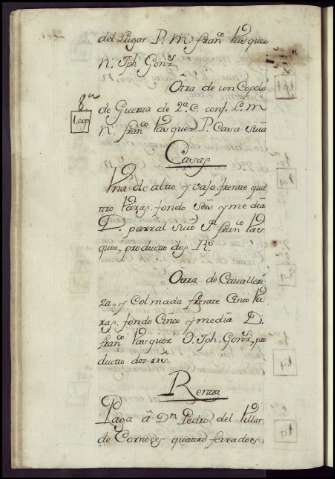 del Lugar P. M. Franco Vazquez
N. Jph Gonz.
Otra de un Copelo
de Guerra de 2a C. conf. L. M.
N. Franco Vazquez P. Casa Sua
Casas
Una de alto y vajo frente qua
tro baras, fondo seis y media
D. parral suio P. Franco Vaz
quez, producto dos Rs
Otra de Cavalleri
za, y Colmada frente Cinco ba
ras, fondo Cinco y media D.
Franco Vazquez O. Jph. Gonz, pro
ductto dos rrs
Rentta
Paga a Dn Pedro del Villar
de Cornoces quattro ferrados